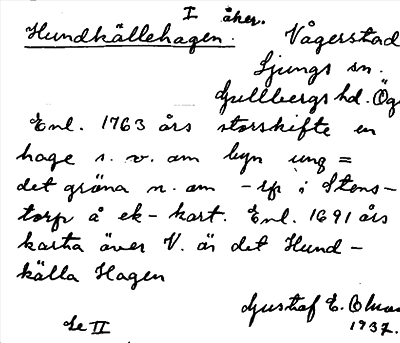 I åker.
Hundkällehagen. Vågerstad
Ljungs sn.
Gullbergs hd. Ög.
Enl. 1763 års storskifte en
hage s. v. om byn ung =
det gröna n. om -rp i Stens-
torp å ek-kart. Enl. 1691 års
karta över V. är det Hund-
källa Hagen
Gustaf E.
Le II 1937.